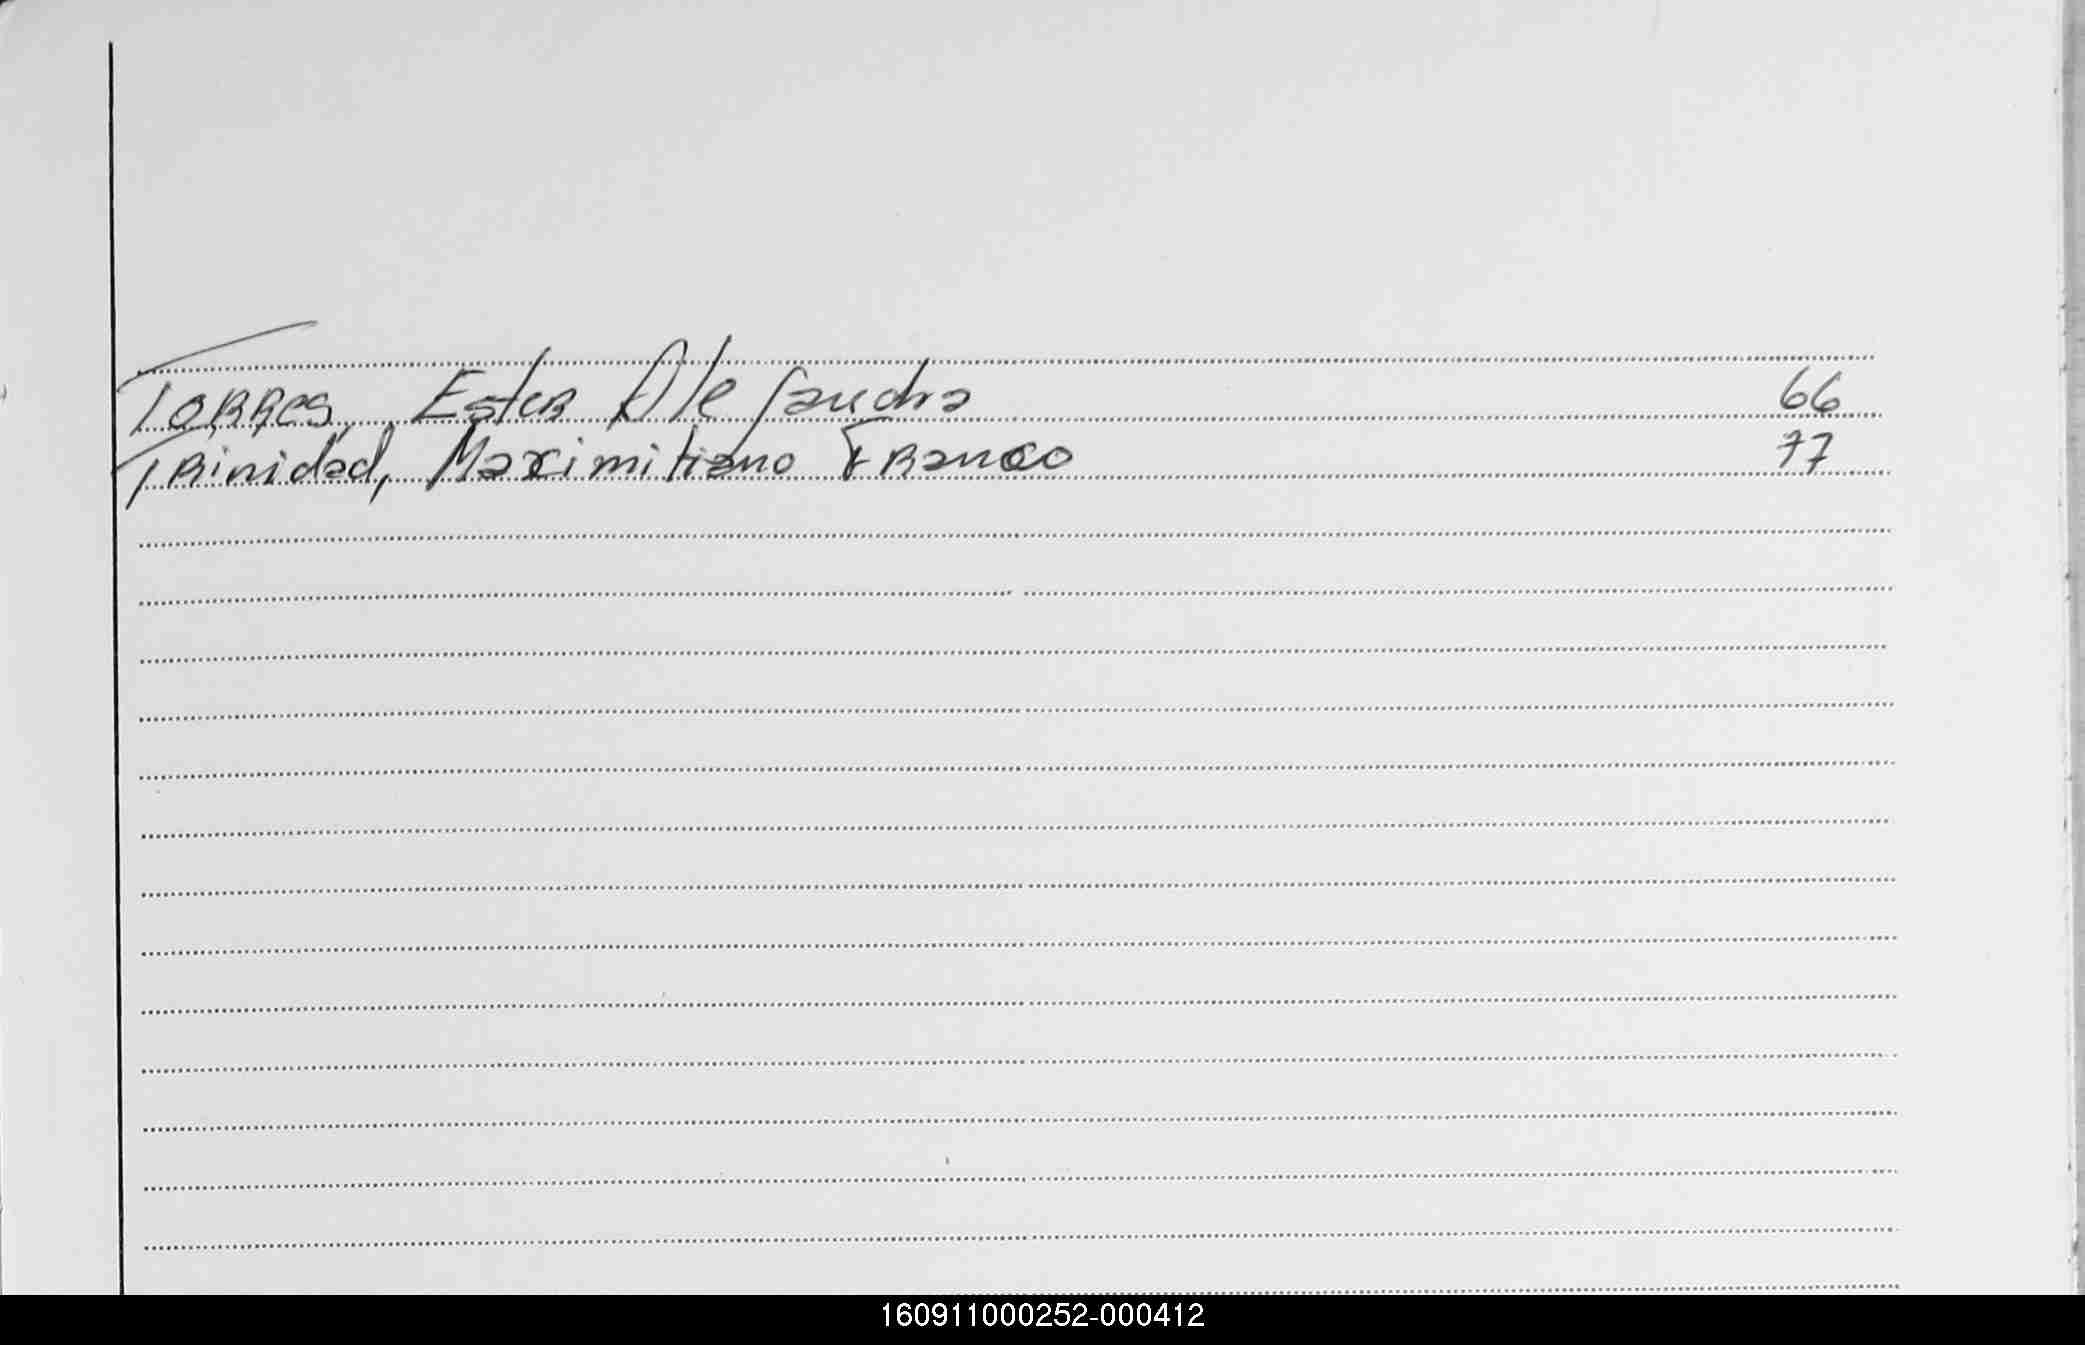 Torres, Ester Alejandra 66
Trinidad, Maximiliano Franco 77
160911000252-000412